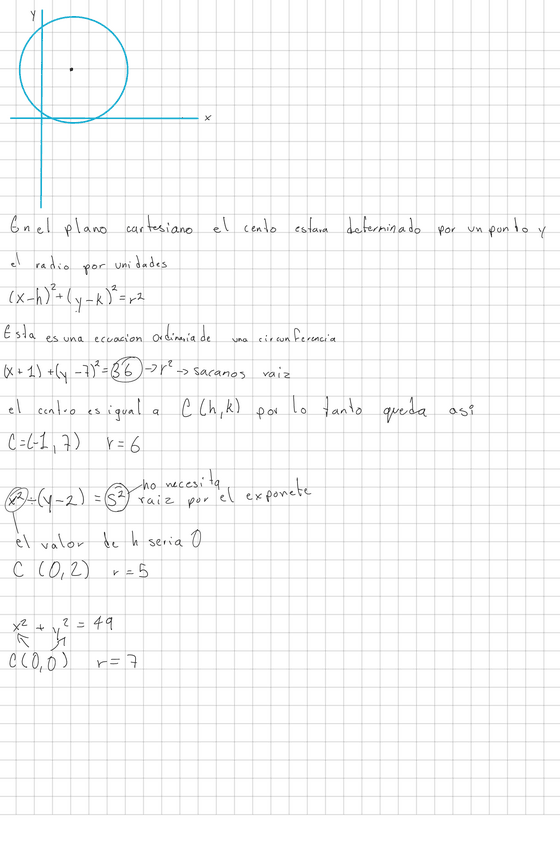 y
x
En el plano cartesiano el cento estara determinado por un punto y
el radio por unidades
(x-h)²+(y-k)²=r²
Esta es una ecuacion ordinaria de una circunferencia
(x+1)+(y-7)²=36->r²->sacanos raiz
el centro es igual a C(h,k) por lo tanto queda asi
C=(-1,7) r=6
no necesita
x²+(y-2)=5² raiz por el exponete
el valor de h seria 0
C (0,2) r=5
x² + y² = 49
C(0,0) r=7